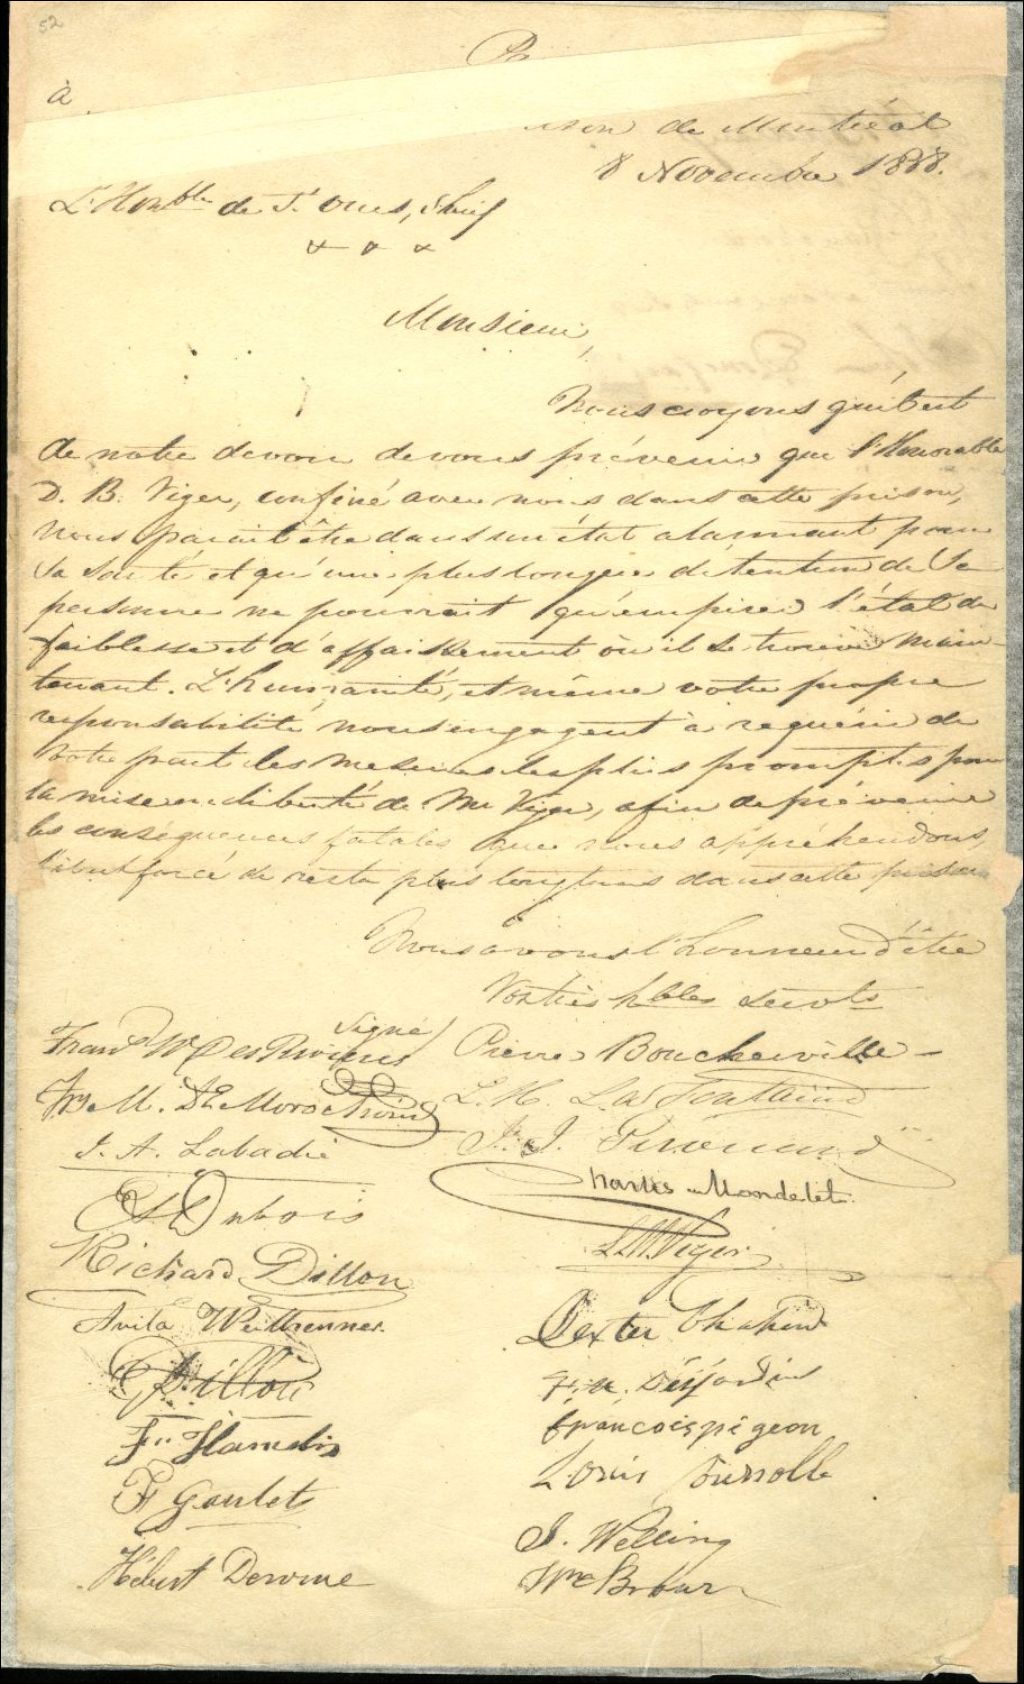 52
P
à
ison de Montréal
8 Novembre 1838.
L'Honble de St Ours, Shérif
Monsieur,
Nous croyons qu'il est
de notre devoir de vous prévenir que l'Honorable
D. B. Viger, confiné avec nous dans cette prison,
nous parait être dans un état alarmant pour
sa santé et qu'une plus longue détention de sa
personne ne pourrait qu'empirer l'état de
faiblesse et d'affaissement où il se trouve main-
tenant. L'humanité, et même votre propre
responsabilité nous engagent à requérir de
votre part les mesures les plus promptes pour
la mise en liberté de Mr Viger, afin de prévenir
les conséquences fatales que nous appréhendons,
s'il est forcé de rester plus longtems dans cette prison
Nous avons l'honneur d'être
Vos très hbles servts
(signé)
Frans W DesRivières Pierre Boucherville
M. L. H. LaFontaine
J. A. Labadie J. J. Girouard
Dubois Charles Mondelet
Richard Dillon L M Viger
Avila Weilbrenner Dexter Chapin
Dillon Desjardins
Fs Hamelin francois pigeon
F Goulet Louis
J. Welling
Hébert Wm Brown